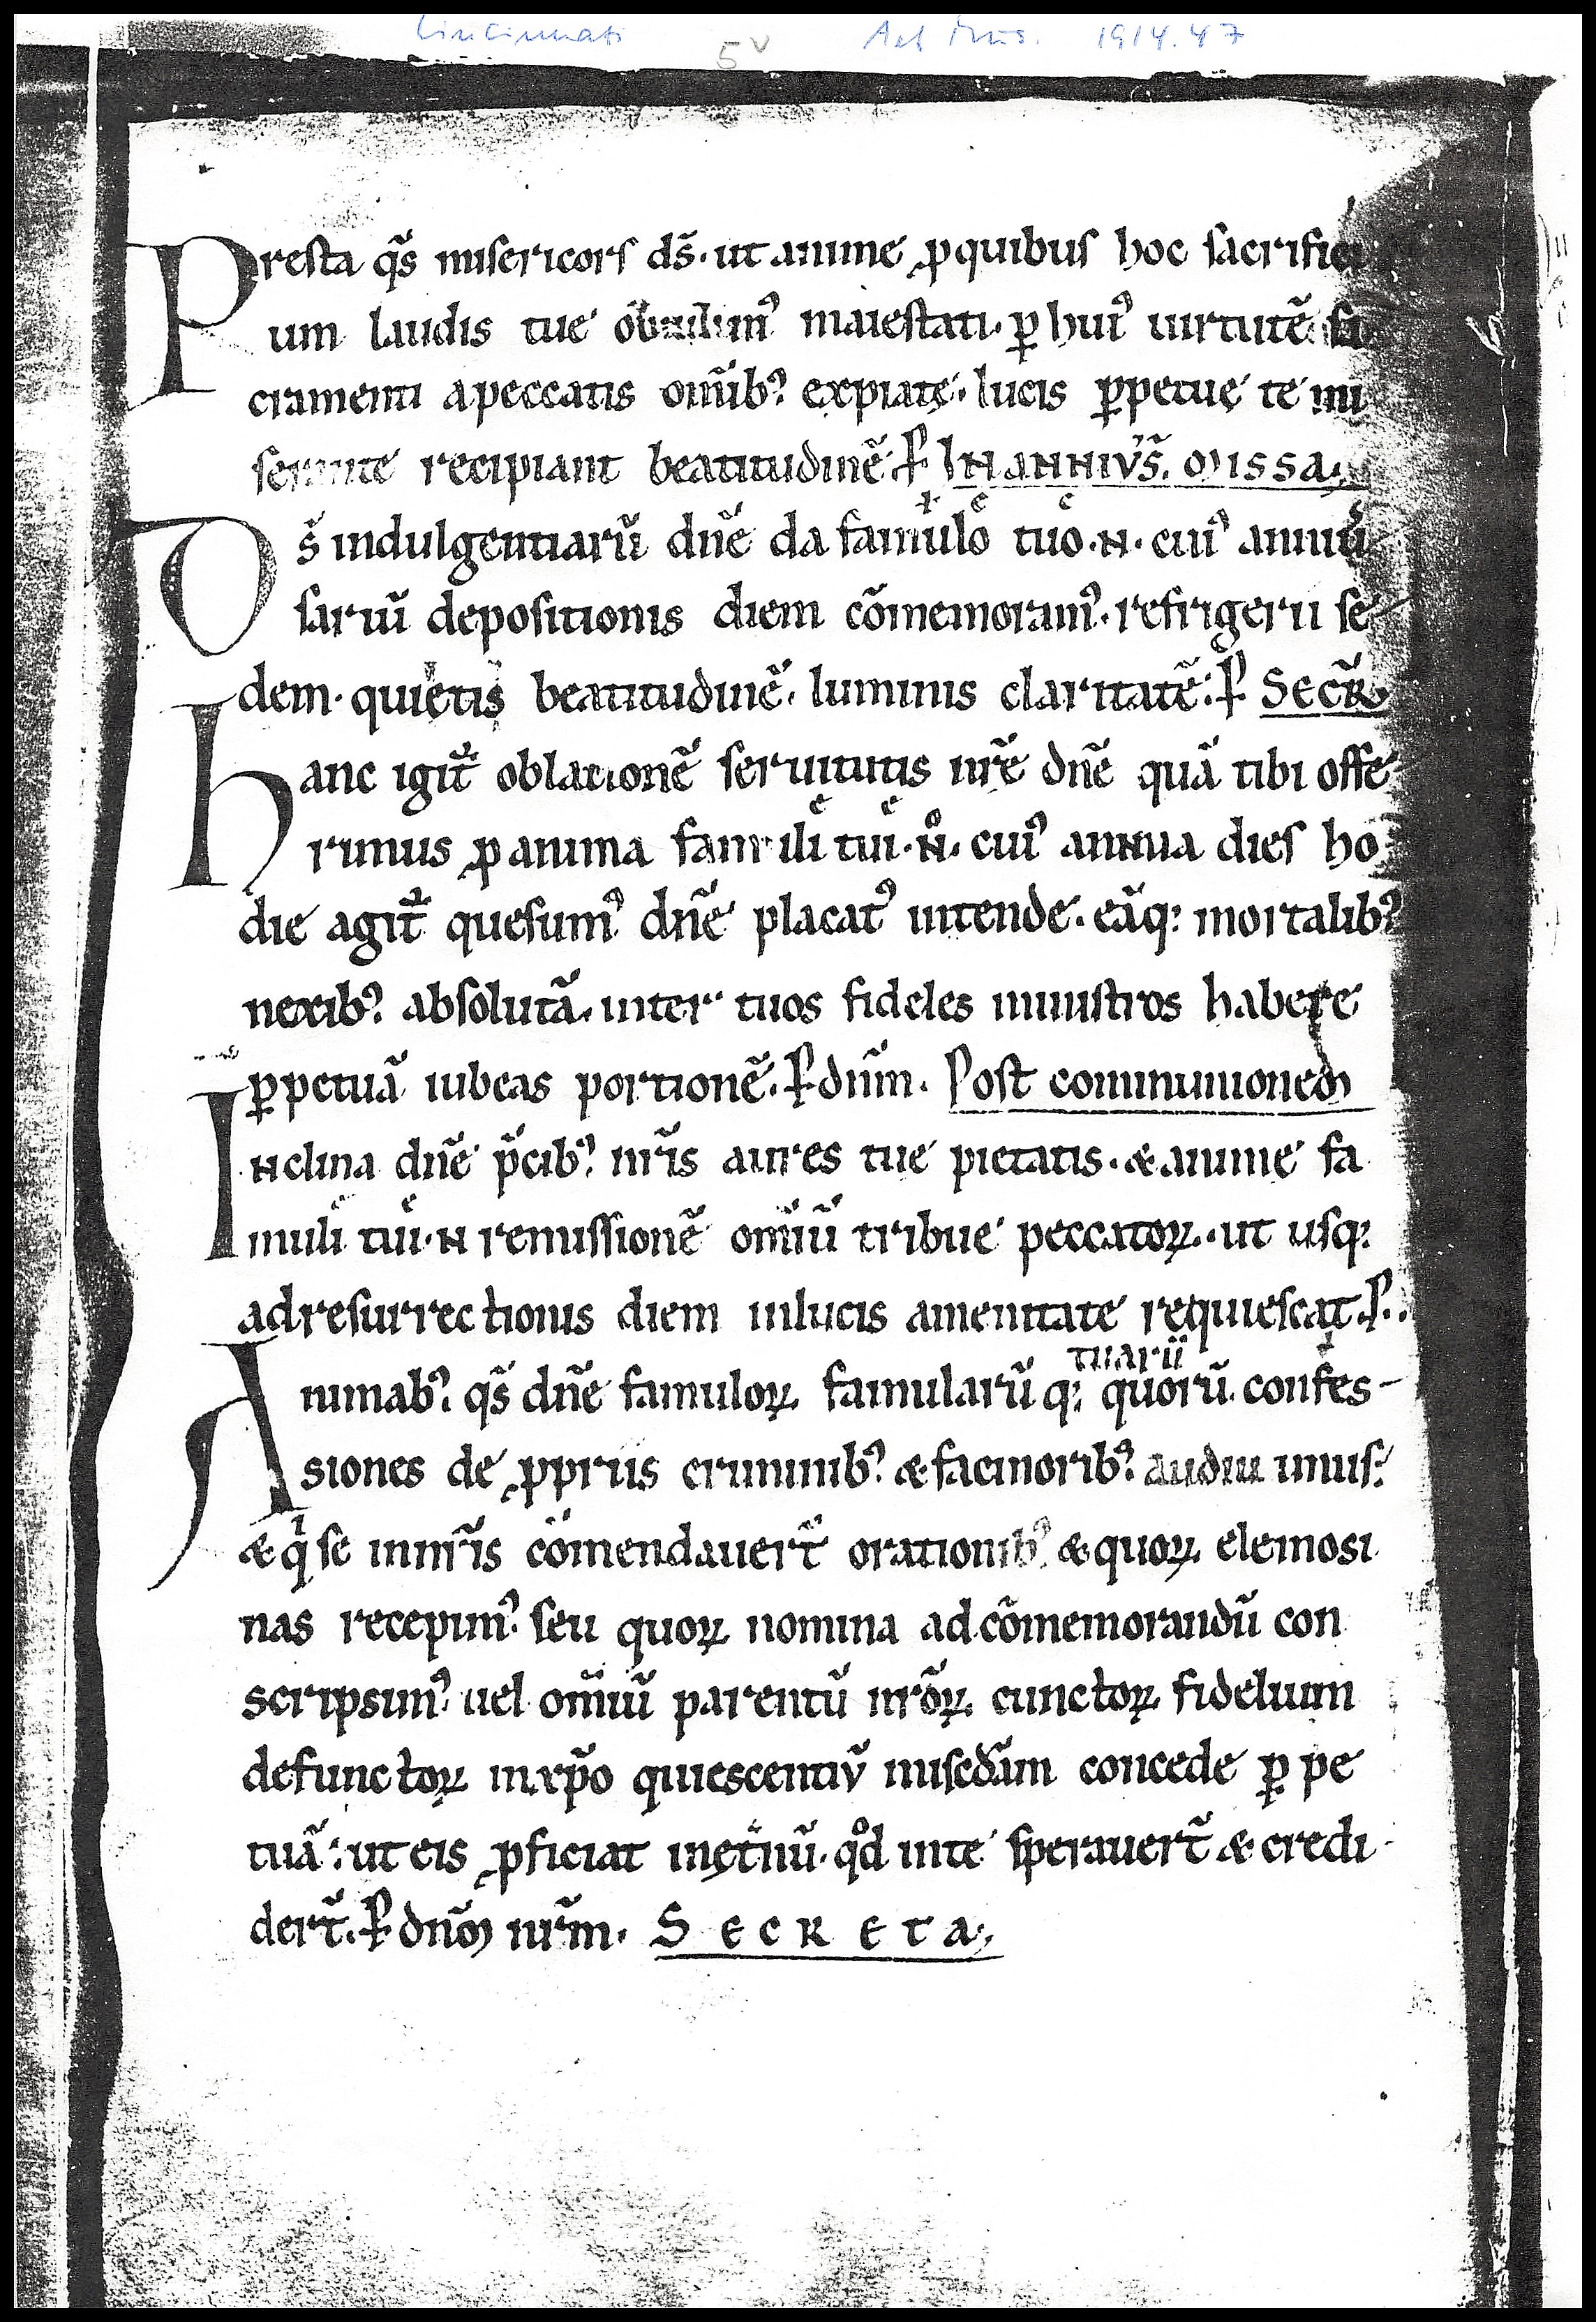 Cincinnati 5v Art Mus. 1914.47
Presta qs̄ misericors ds̄. ut anime ꝓquibus hoc sacrifici
um laudis tue obtulimꝰ maiestati. ꝑ huiꝰ uirtutē sa
cramenti apeccatis om̄ibꝰ expiatę. lucis ꝑpetuę te mi
serante recipiant beatitudinē. P̱ IN ANNIVS̄. MISSA.
Ds̄ indulgentiarū dn̄e da famulo tuo .N. cuiꝰ anniū
sariū depositionis diem cōmemoramꝰ. refrigerii se
dem. quietis beatitudinē. luminis claritatē. P̱ SECR̄
hanc igit̄ oblationē seruitutis nr̄e dn̄e quā tibi offe
rimus ꝓ anima famuli tui .N̊. cuiꝰ annua dies ho
die agit̄ quesumꝰ dn̄e placatꝰ intende. eāq; mortalibꝰ
nexibꝰ absolutā. inter tuos fideles ministros habere
ꝑpetuā iubeas portionē. P̱ dn̄m. Post communionem
Inclina dn̄e p̄cibꝰ nr̄is aures tue pietatis. & anime fa
muli tui .N remissionē om̄iū tribue peccatoꝝ. ut usq;
adresurrectionis diem inlucis amenitate requiescat. P̱.
tuarū
Animabꝰ qs̄ dn̄e famuloꝝ famularū q; quorū confes-
siones de ꝓpriis criminibꝰ & facinoribꝰ audiuimus.
& qͥ se innr̄is cōmendauert̄ orationibꝰ & quoꝝ elemosi
nas recepimꝰ. seu quoꝝ nomina ad cōmemorandū con
scripsimꝰ uel om̄iū parentū nr̄oꝝ cunctoꝝ fidelium
defunctoꝝ inxp̄o quiescentiū miscd̄am concede ꝑpe
tuā. ut eis ꝓficiat inęt̄nū. qͦd inte sperauert̄ & credi
dert̄. P̱ dn̄m nr̄m. SECRETA.